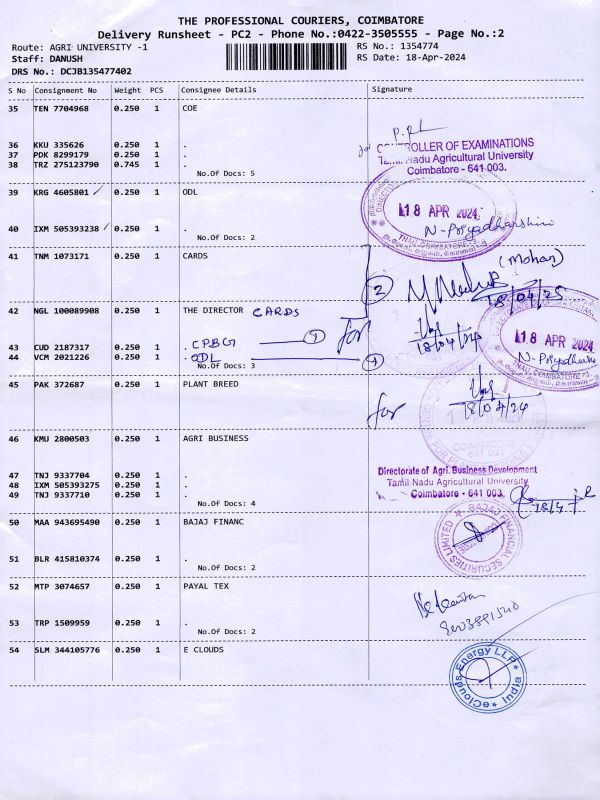 THE PROFESSIONAL COURIERS, COIMBATORE
Delivery Runsheet - PC2 - Phone No.:0422-3505555 - Page No.:2
Route: AGRI UNIVERSITY -1 RS No.: 1354774
Staff: DANUSH RS Date: 18-Apr-2024
DRS No.: DCJB135477402
S No Consignment No Weight PCS Consignee Details Signature
35 TEN 7704968 0.250 1 COE
36 KKU 335626 0.250 1 .
37 PDK 8299179 0.250 1 .
38 TRZ 275123790 0.745 1 .
No.Of Docs: 5
CONTROLLER OF EXAMINATIONS
Tamil Nadu Agricultural University
Coimbatore - 641 003.
39 KRG 4605801 0.250 1 ODL
18 APR 2024
N-Priyadharshini
40 IXM 505393238 0.250 1 .
No.Of Docs: 2
41 TNM 1073171 0.250 1 CARDS
(Mohan)
2
18/04/25
42 NGL 100089908 0.250 1 THE DIRECTOR CARDS
for
18/04/24
18 APR 2024
43 CUD 2187317 0.250 1 . CPBG
44 VCM 2021226 0.250 1 . ODL
No.Of Docs: 3
45 PAK 372687 0.250 1 PLANT BREED
for
18/04/24
COIMBATORE
641 003
46 KMU 2800503 0.250 1 AGRI BUSINESS
47 TNJ 9337704 0.250 1 .
48 IXM 505393275 0.250 1 .
49 TNJ 9337710 0.250 1 .
No.Of Docs: 4
Directorate of Agri. Business Development
Tamil Nadu Agricultural University
Coimbatore - 641 003.
50 MAA 943695490 0.250 1 BAJAJ FINANC
BAJAJ FINANCIAL SECURITIES LIMITED
51 BLR 415810374 0.250 1 .
No.Of Docs: 2
52 MTP 3074657 0.250 1 PAYAL TEX
53 TRP 1509959 0.250 1 .
No.Of Docs: 2
54 SLM 344105776 0.250 1 E CLOUDS
eClouds Energy LLP
India